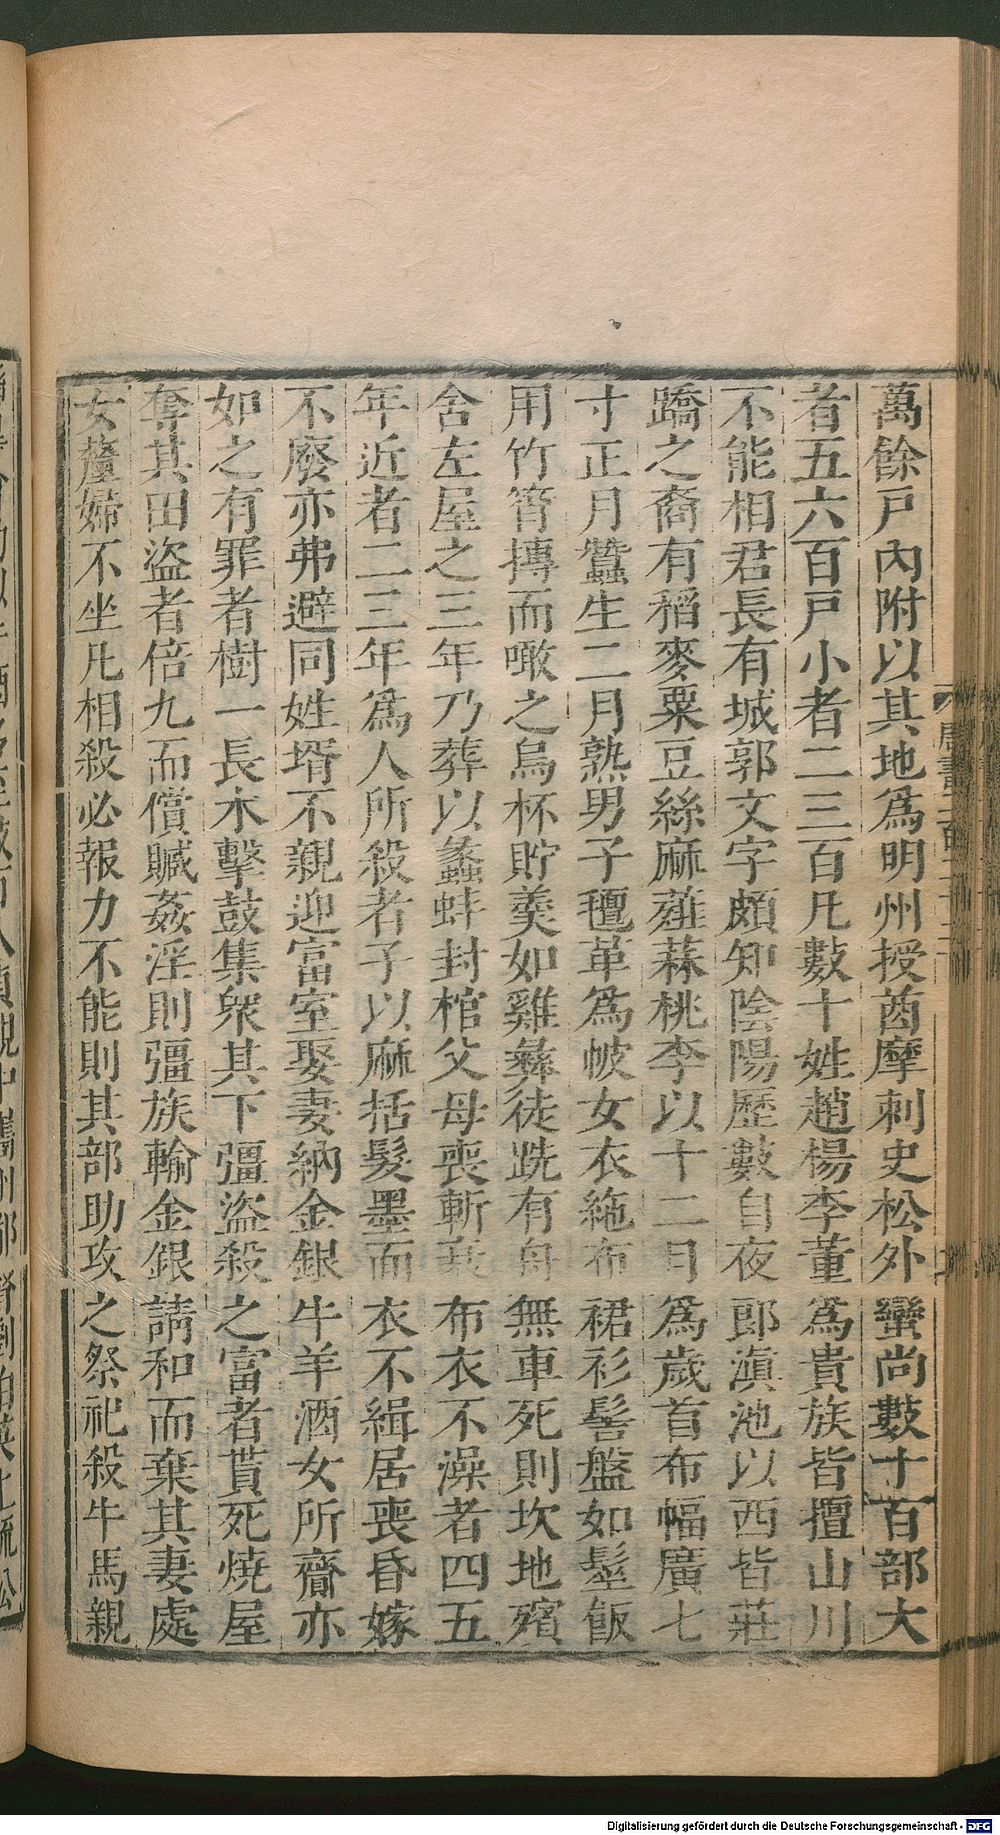 萬餘戸內附以其地爲明州授酋摩刺史松外蠻尚數十百部大
者五六百戸小者二三百凡數十姓趙楊李董爲貴族皆擅山川
不能相君長有城郭文字頗知陰陽歷數自夜郎滇池以西皆莊
蹻之裔有稻麥粟豆絲麻薤蒜桃李以十二月爲歲首布幅廣七
寸正月蠶生二月熟男子氊革爲帔女衣絁布裙衫髻盤如髽飯
用竹筲摶而噉之烏杯貯羹如雞彝徒跣有舟無車死則坎地殯
舍左屋之三年乃葬以蠡蚌封棺父母喪斬衰布衣不澡者四五
年近者二三年爲人所殺者子以麻括髮墨面衣不緝居喪昏嫁
不廢亦弗避同姓壻不親迎富室娶妻納金銀牛羊酒女所齎亦
如之有罪者樹一長木擊鼓集衆其下彊盜殺之富者貰死燒屋
奪其田盜者倍九而償贓姦淫則彊族輸金銀請和而棄其妻處
女釐婦不坐凡相殺必報力不能則其部助攻之祭祀殺牛馬親
Digitalisierung gefördert durch die Deutsche Forschungsgemeinschaft - DFG